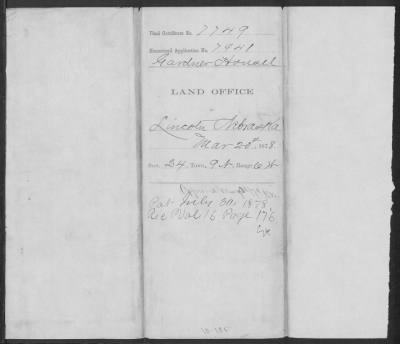 Final Certificate No. 7749
Homestead Application No. 7941
Gardner
LAND OFFICE
Lincoln Nebraska
Mar 20th 1878.
Sect. 24, Town, 9 N. Range 6 W
Pat July 30, 1878
Rec Vol 16 Page 176